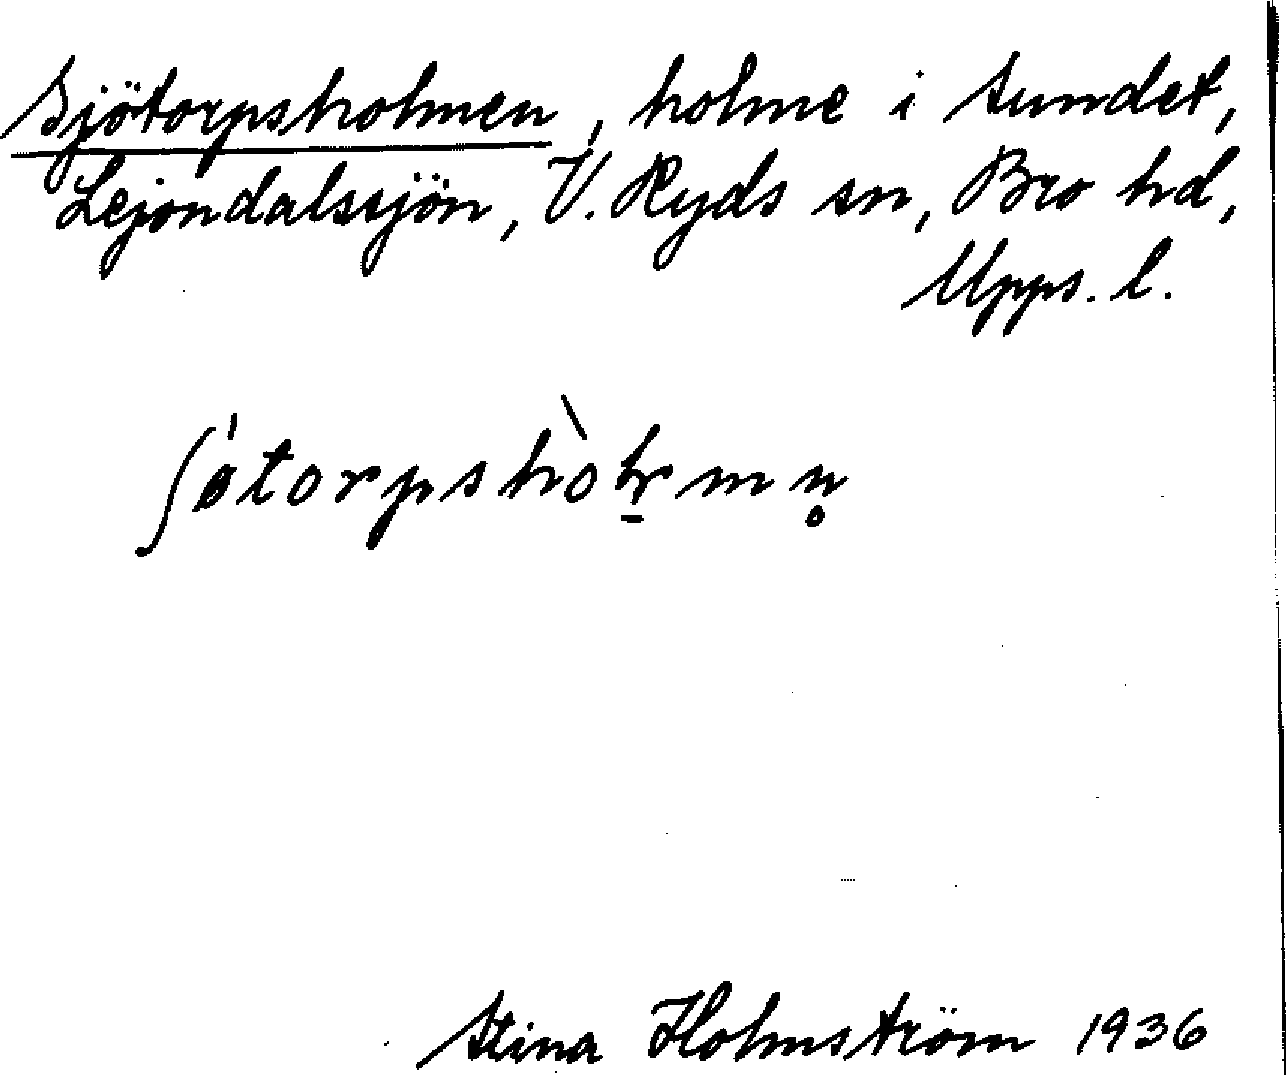 Sjötorpsholmen, holme i sundet,
Lejondalssjön, V. Ryds sn, Bro hd,
Upps. l.
ʃǿtorpshòl̠mn̥
Stina Holmström 1936